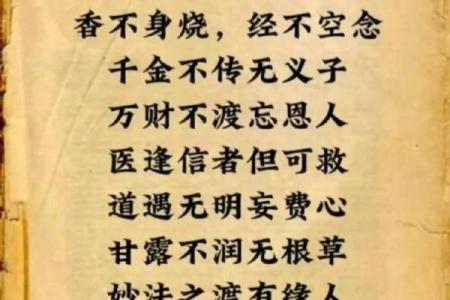 香不身烧，经不空念
千金不传无义子
万财不渡忘恩人
医逢信者但可救
道遇无明妄费心
甘露不润无根草
妙法之渡有缘人